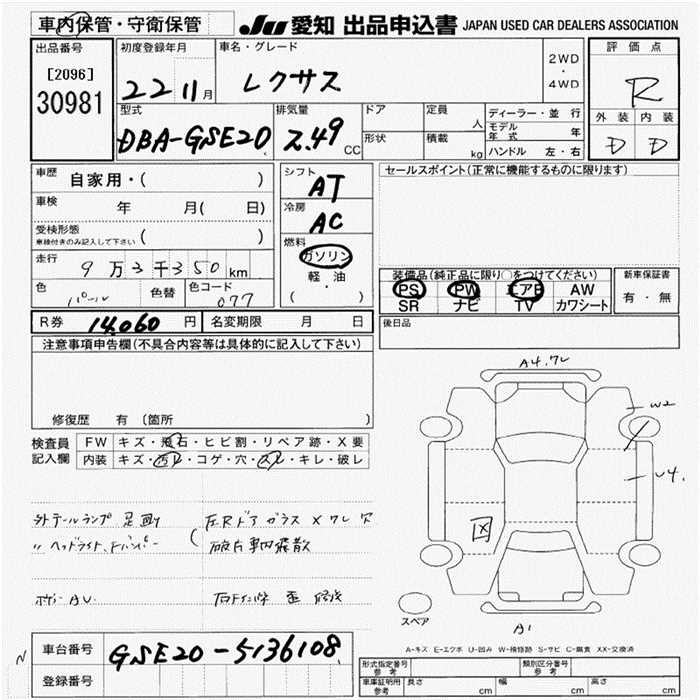 車内保管・守衛保管 JU 愛知 出品申込書 JAPAN USED CAR DEALERS ASSOCIATION
出品番号 [2096] 30981
初度登録年月 22 11月
車名・グレード レクサス
2WD・4WD
評価点 R
外装 内装
D D
型式 DBA-GSE20
排気量 2.49 CC
ドア 定員 人
形状 積載 kg
ディーラー・並行
モデル年式 年
ハンドル 左・右
車歴 自家用・( )
車検 年 月( 日)
受検形態 車検付きのみ記入して下さい ( )
走行 9万3千350km
色 パール 色替 色コード 077
シフト AT
冷房 AC
燃料 ガソリン
軽・油
( )
セールスポイント(正常に機能するものに限ります)
装備品(純正品に限り○をつけてください)
PS PW エアB AW
SR ナビ TV カワシート
新車保証書 有・無
R券 14,060円 名変期限 月 日
後日品
注意事項申告欄(不具合内容等は具体的に記入して下さい)
修復歴 有 〔箇所 〕
検査員記入欄
FW キズ・飛石・ヒビ割・リペア跡・X要
内装 キズ・汚レ・コゲ・穴・スレ・キレ・破レ
外 テールランプ 足廻り
〃 ヘッドライト、Fバンパー
左Rドア ガラス X ワレ 穴
破片車内飛散
ボデー AU
歪
A4.ワレ
W2
U4
図
スペア
A1
A-キズ E-エクボ U-凹み W-補修跡 S-サビ C-腐食 XX-交換済
N
車台番号 GSE20-5136108
登録番号
形式指定番号 参考 類別区分番号 参考
車庫証明用 参考 長さ cm 幅 cm 高さ cm